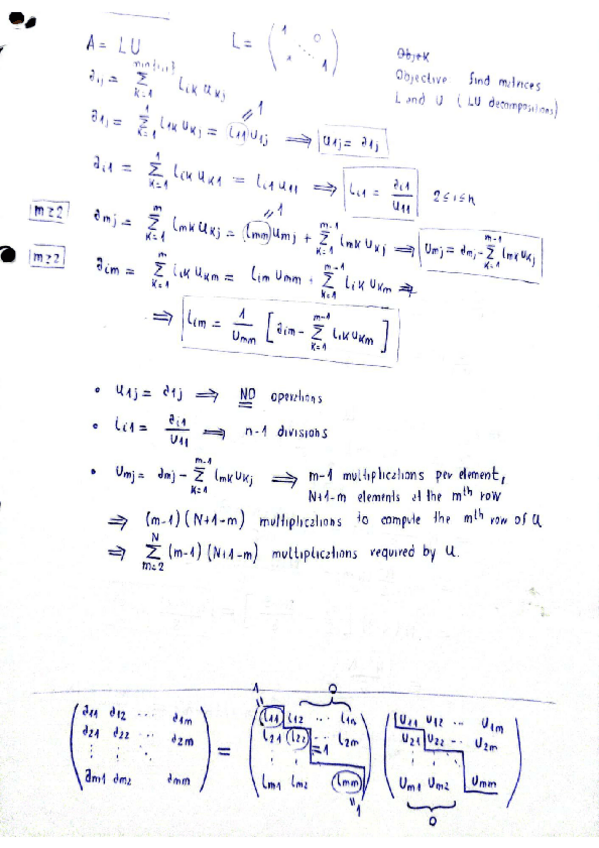 A = LU   L = ( 1 0 ⋱ 1 1 )   Objek
Objective find matrices
L and U ( LU decomposition)
∂ij = Σ_{k=1}^{min{i,j}} lik ukj
∂1j = Σ_{k=1}^{1} l1k ukj = l11 u1j ⟹ u1j = ∂1j
"1
∂i1 = Σ_{k=1}^{1} lik uk1 = li1 u11 ⟹ li1 = ∂i1/u11   2≤i≤n
m≥2   ∂mj = Σ_{k=1}^{m} lmk ukj = lmm umj + Σ_{k=1}^{m-1} lmk ukj ⟹ umj = ∂mj - Σ_{k=1}^{m-1} lmk ukj
"1
m≥2   ∂im = Σ_{k=1}^{m} lik ukm = lim umm + Σ_{k=1}^{m-1} lik ukm ⟹
⟹ lim = 1/umm [ ∂im - Σ_{k=1}^{m-1} lik ukm ]
• u1j = ∂1j ⟹ NO operations
• li1 = ∂i1/u11 ⟹ n-1 divisions
• umj = ∂mj - Σ_{k=1}^{m-1} lmk ukj ⟹ m-1 multiplications per element,
N+1-m elements at the mth row
⟹ (m-1)(N+1-m) multiplications to compute the mth row of U
⟹ Σ_{m=2}^{N} (m-1)(N+1-m) multiplications required by U.
1   0
( ∂11 ∂12 ... ∂1m ) ( l11 l12 ... l1m ) ( u11 u12 ... u1m )
( ∂21 ∂22 ... ∂2m ) = ( l21 l22 =1 ... l2m ) ( u21 u22 ... u2m )
( ⋮ ⋮ ⋱ ) ( ⋮ ⋮ ) ( ⋮ ⋮ ⋱ )
( ∂m1 ∂m2 ∂mm ) ( lm1 lm2 lmm ) ( um1 um2 umm )
"1   0